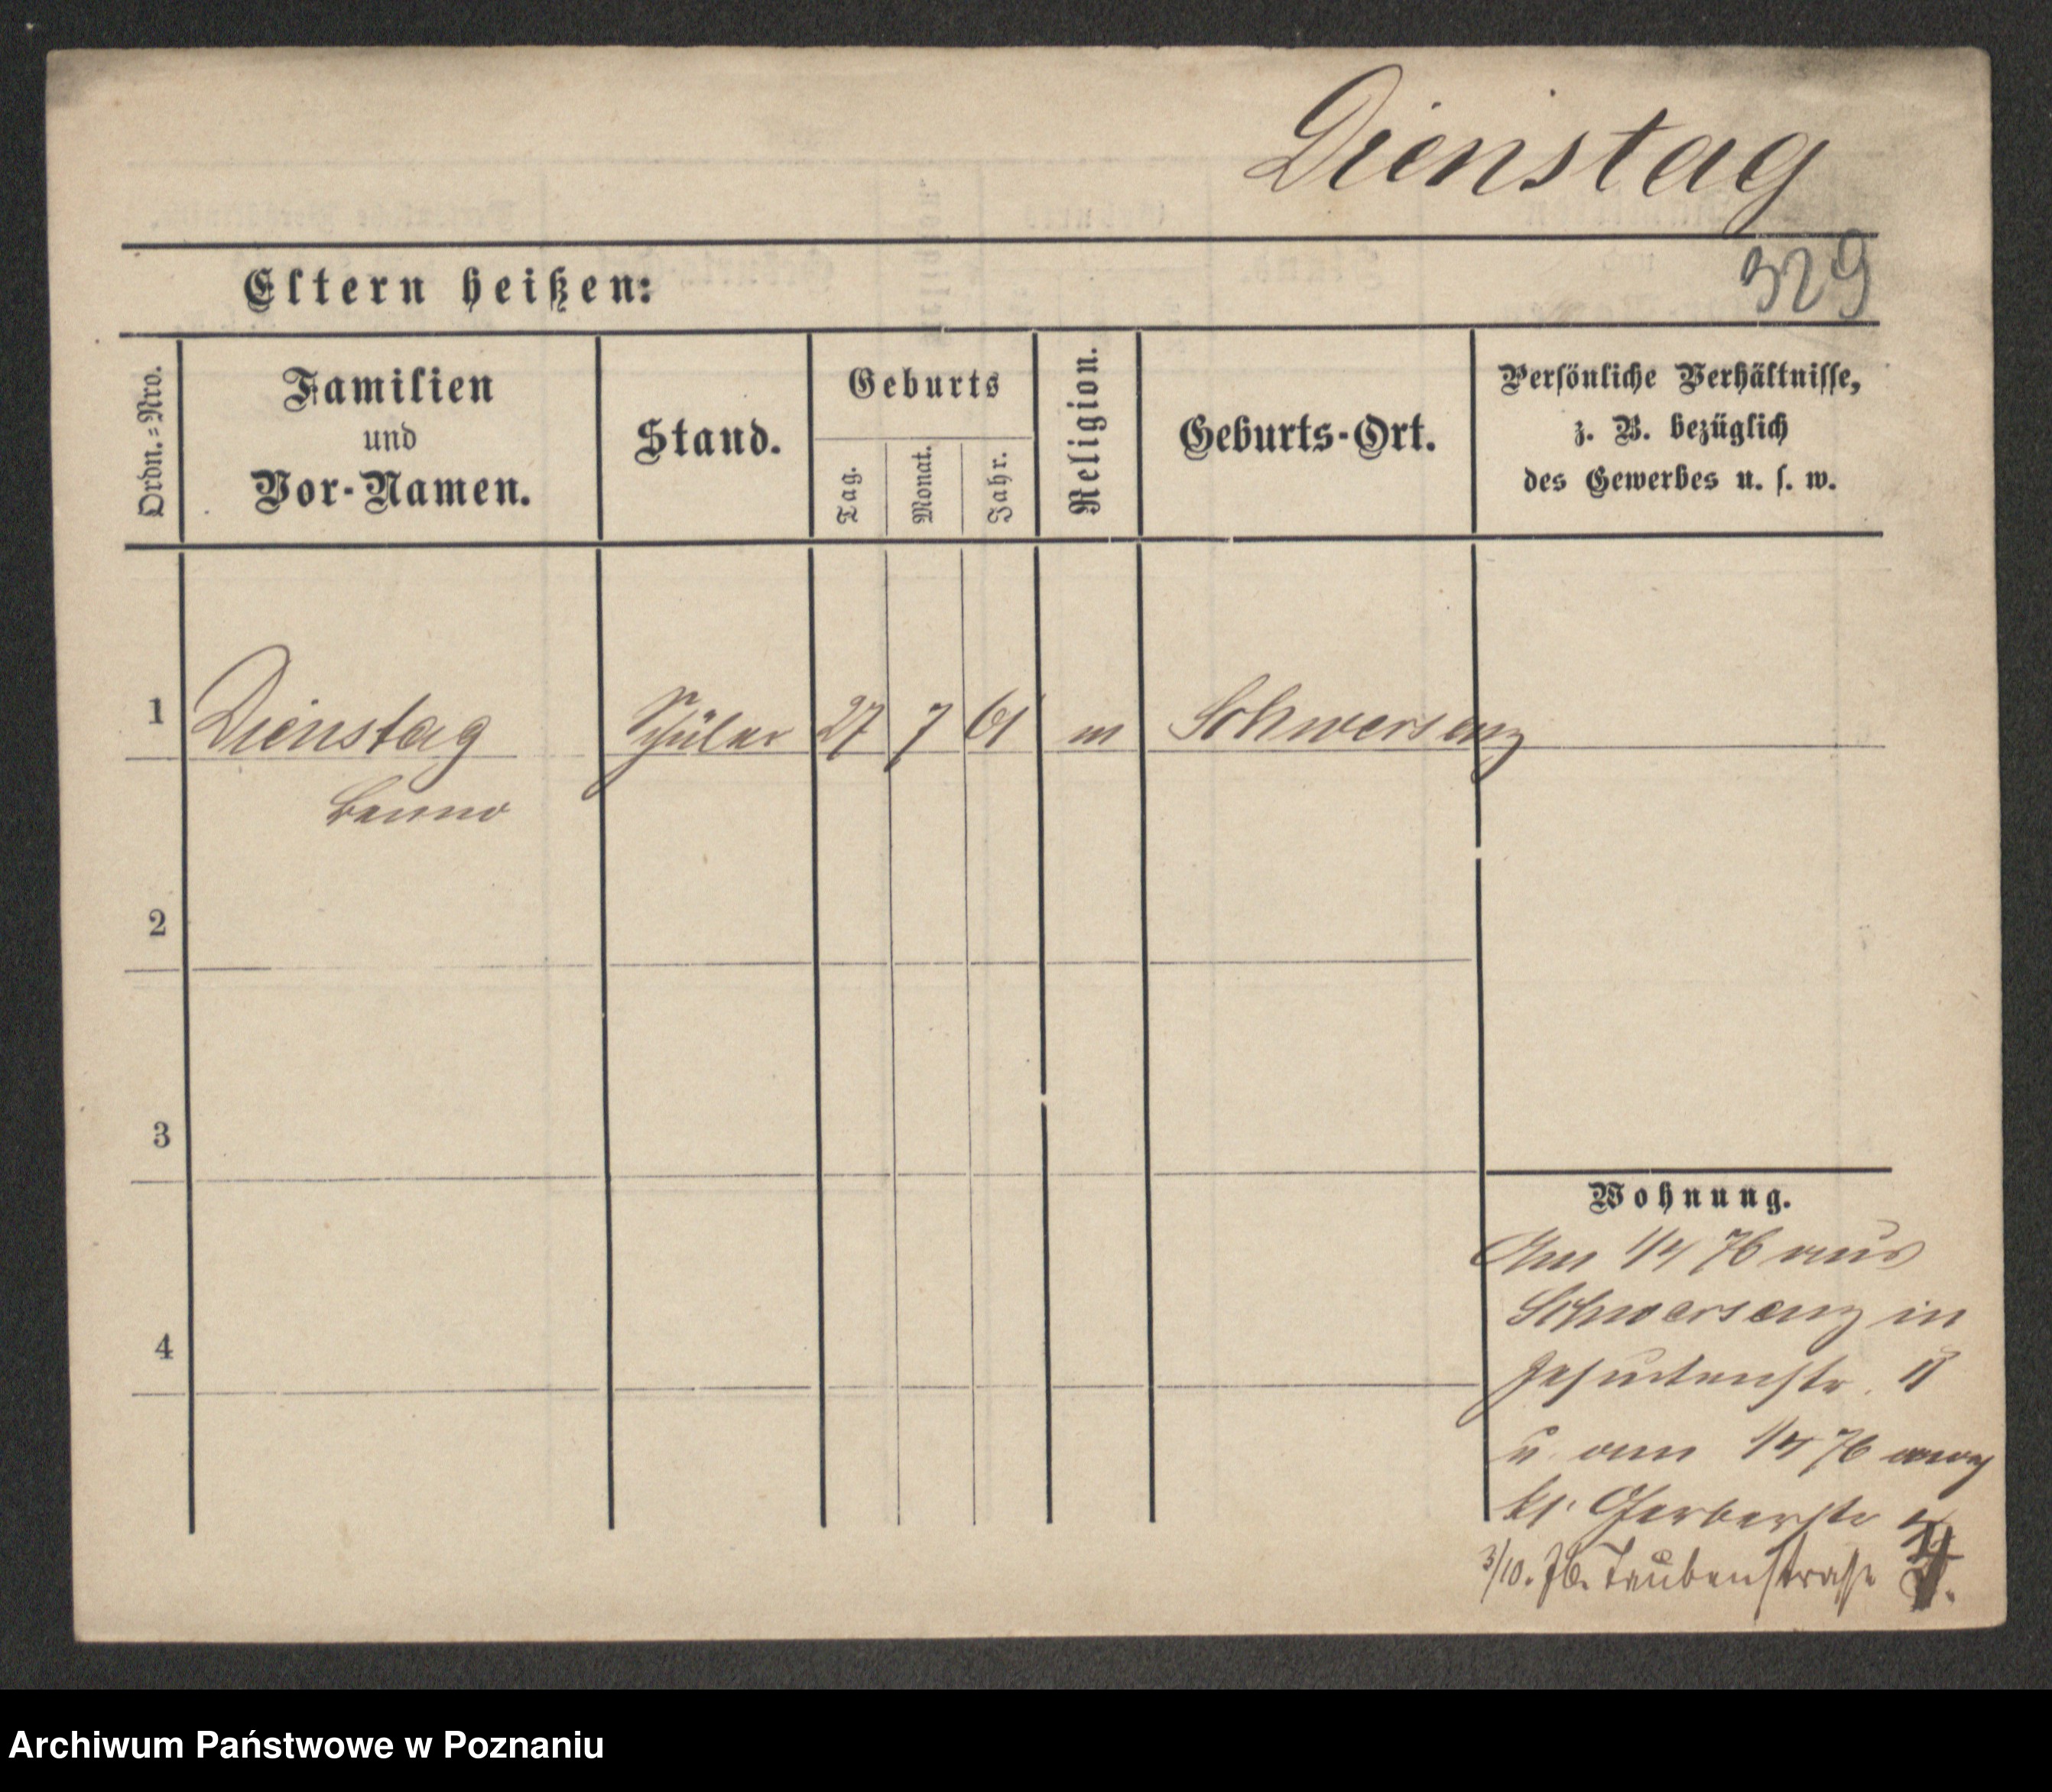 Dienstag
329
Eltern heißen:
Ordn.=Nro.
Familien
und
Vor-Namen.
Stand.
Geburts
Tag.
Monat.
Jahr.
Religion.
Geburts-Ort.
Persönliche Verhältnisse,
z. B. bezüglich
des Gewerbes u. s. w.
1 Dienstag Schüler 27 7 61 m Schwersenz
Benno
2
3
4
Wohnung.
Am 1/4 76 aus
Schwersenz in
Jesuitenstr.
u. am 1/4 76
kl. Gerberstr 4
3/10. 76. Taubenstraße
Archiwum Państwowe w Poznaniu